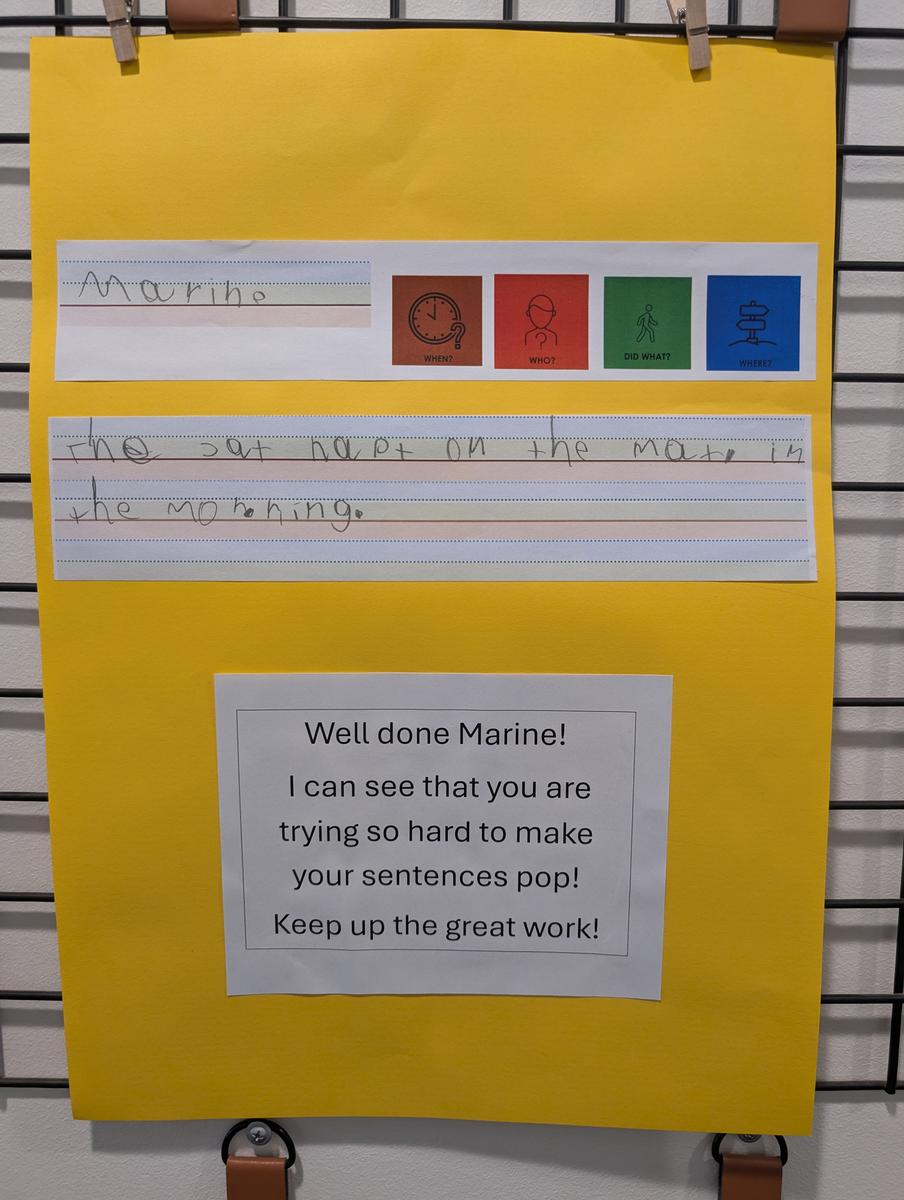 Marine
WHEN?
WHO?
DID WHAT?
WHERE?
The cat napt on the mat. in
the morning.
Well done Marine!
I can see that you are
trying so hard to make
your sentences pop!
Keep up the great work!